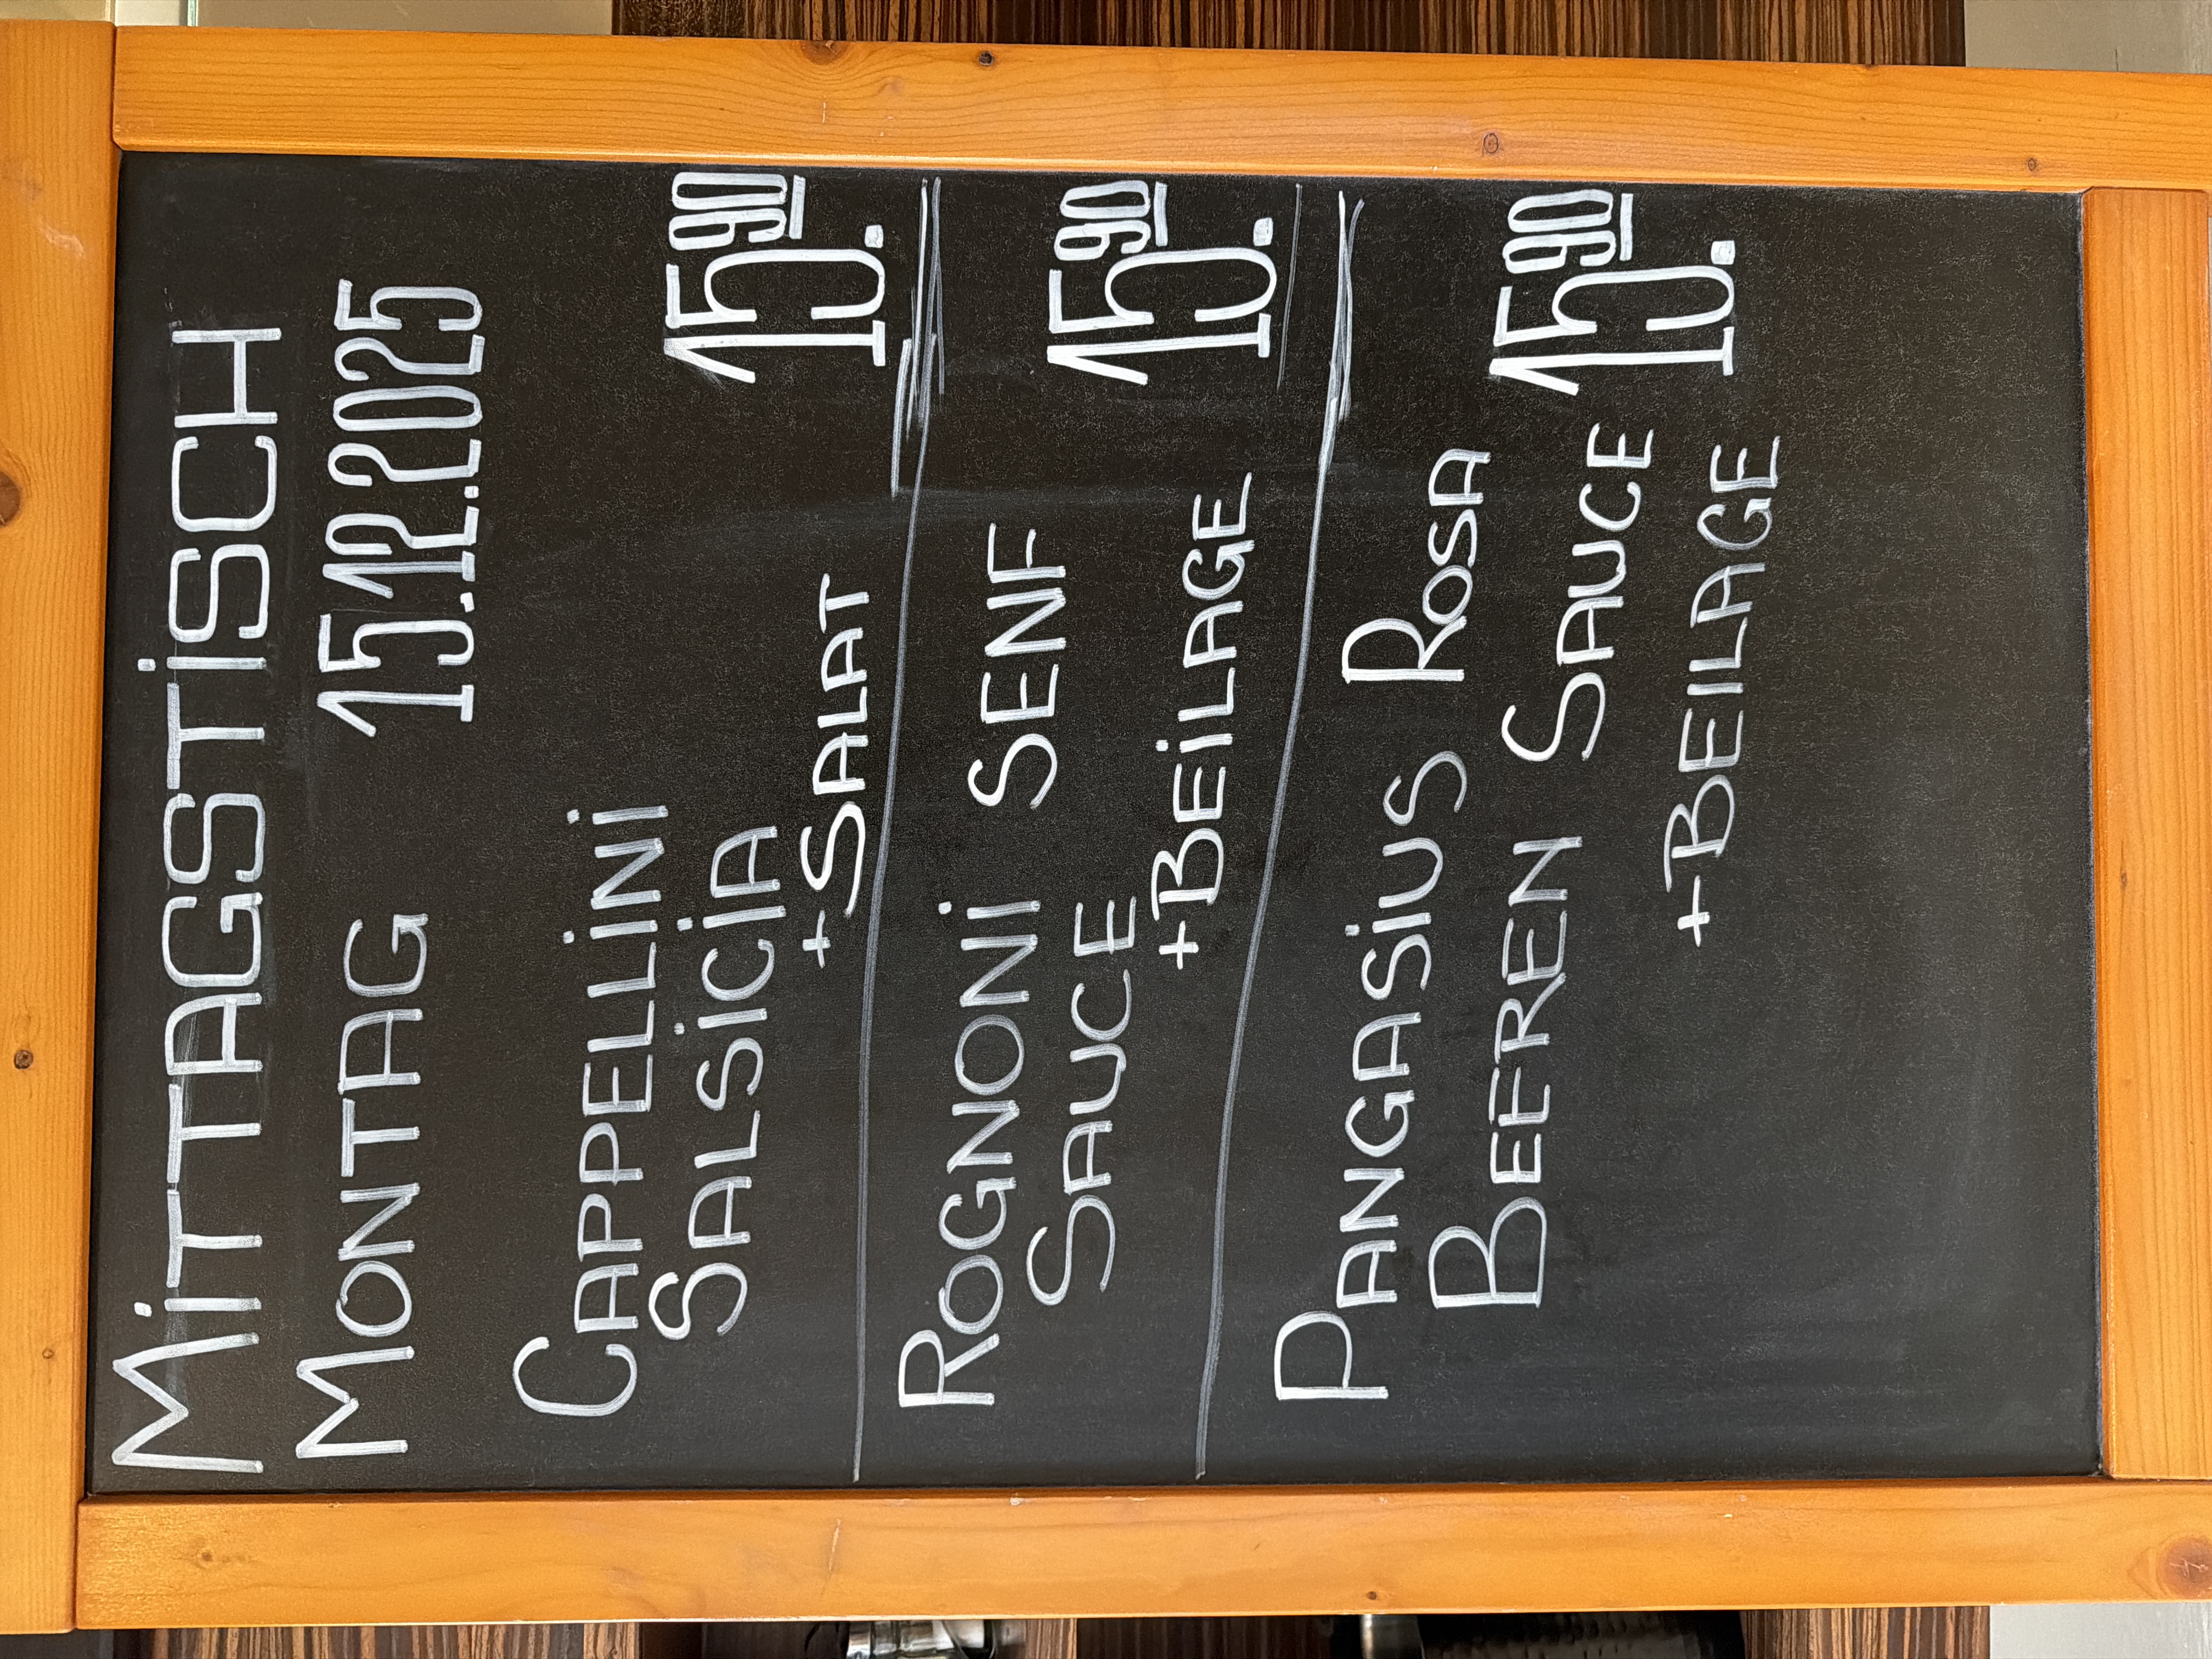 MiTTAGSTiSCH
MONTAG 15.12.2025
CAPPELLiNi
SALSiCiA 15.90
+SALAT
ROGNONi SENF
SAUCE 15.90
+BEiLAGE
PANGASiUS ROSA
BEEREN SAUCE 15.90
+BEILAGE